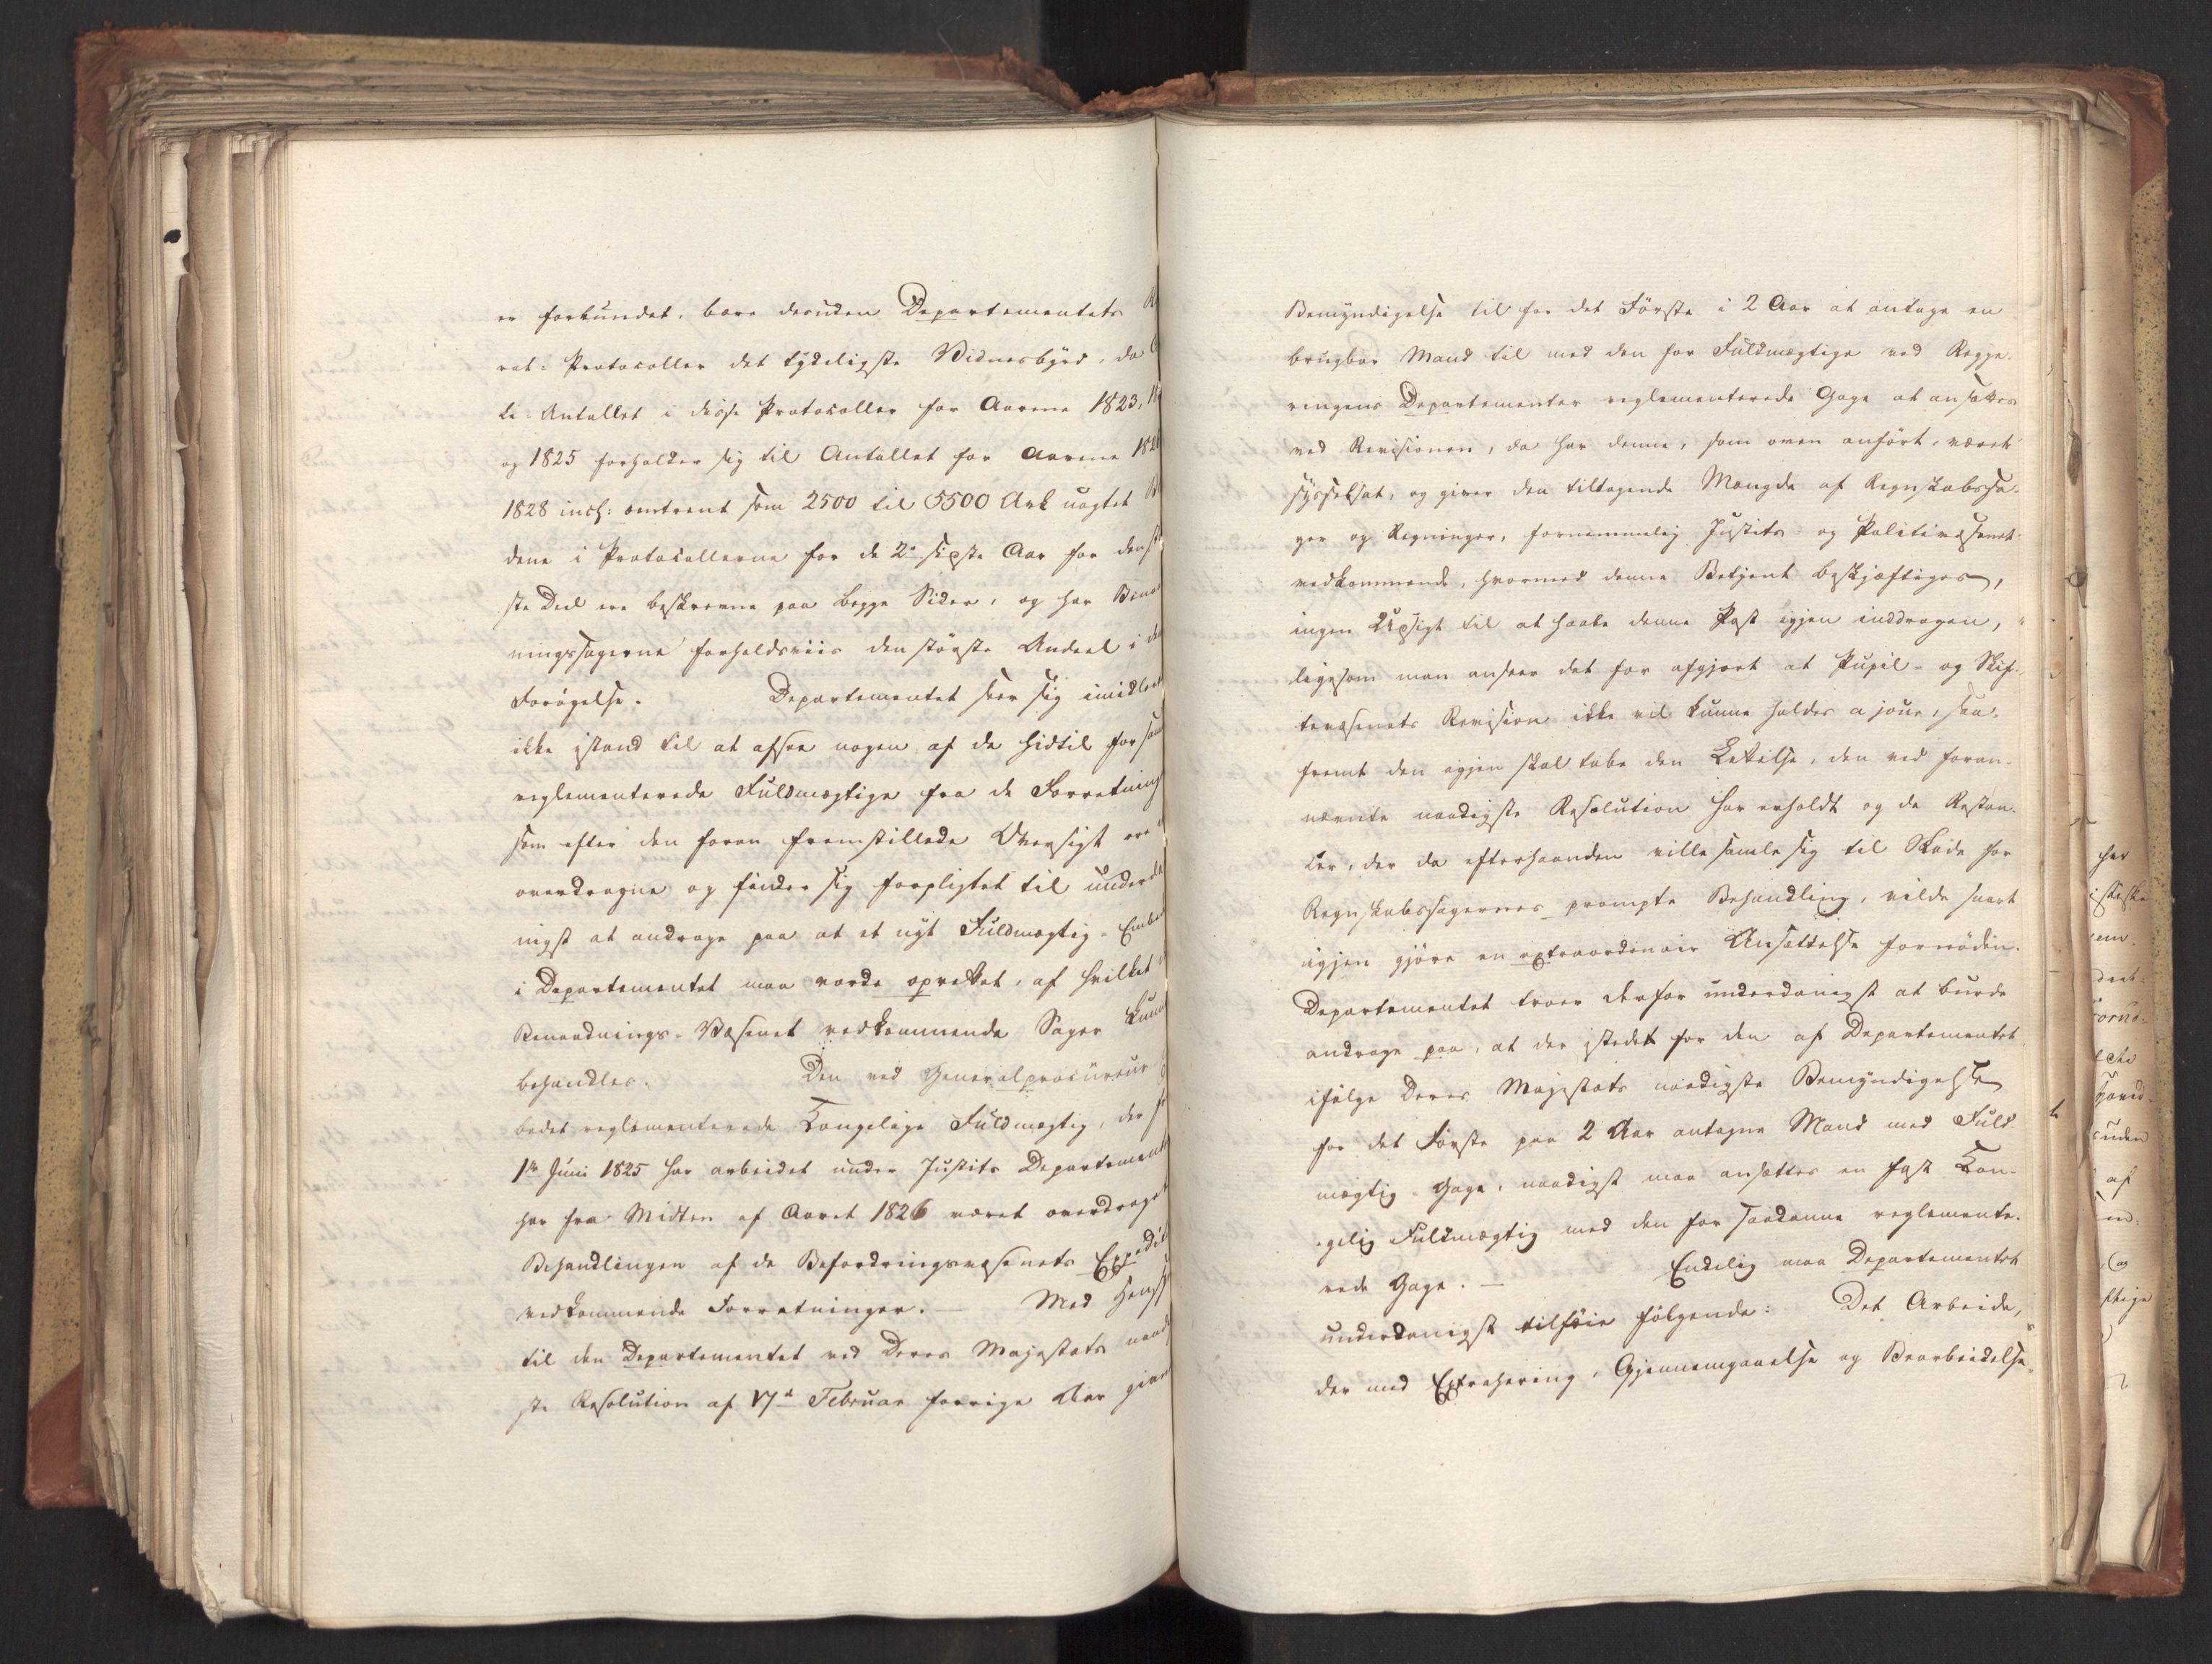 er forbundet, bære desuden Departementets
rat-Protocoller det tydeligste Vidnesbyrd, da
le-Antallet i disse Protocoller for Aarene 1823,
og 1825 forholder sig til Antallet for Aarene 182
1828 incl: omtrent som 2500 til 5500 Ark uagtet
dene i Protocollerne for de 2de sidste Aar for den st
ste Deel ere beskrevne paa begge Sider, og har Bena
ningssagerne forholdsviis den største Andeel i de
Forøgelse. Departementet seer sig imidlert
ikke istand til at afsee nogen af de hidtil for sam
reglementerede Fuldmægtige fra de Forretning
som efter den foran fremstillede Oversigt ere
overdragne og finder sig forpligtet til underda
nigst at andrage paa at et nyt Fuldmægtig-Embe
i Departementet maa vorde oprettet, af hvilket
Benaadnings-Væsenet vedkommende Sager kunn
behandles. Den ved Generalprocureur
bedet reglementerede Kongelige Fuldmægtig, der si
1ste Juni 1825 har arbeidet under Justits Departement
har fra Midten af Aaret 1826 været overdraget
Behandlingen af de Befordringsvæsenets Expedit
vedkommende Forretninger. — Med Hensy
til den Departementet ved Deres Majestæts naadi
ste Resolution af 17de Februar forrige Aar givn
Bemyndigelse til for det Første i 2 Aar at antage en
brugbar Mand til med den for Fuldmægtige ved Regje-
ringens Departementer reglementerede Gage at ansættes
ved Revisionen, da har denne, som oven anført, været
sysselsat, og giver den tiltagende Mængde af Regnskabssa-
ger og Regninger, fornemmelig Justits- og Politivæsenet
vedkommende, hvormed denne Betjent beskjæftiges,
ingen Udsigt til at haabe denne Post igjen inddragen,
ligesom man anseer det for afgjort at Pupil- og Skif-
tevæsenets Revision ikke vil kunne holdes a jour, saa-
fremt den igjen skal tabe den Lettelse, den ved foran-
nævnte naadigste Resolution har erholdt og de Restan-
cer, der da efterhaanden ville samle sig til Skade for
Regnskabssagernes prompte Behandling, vilde snart
igjen gjøre en extraordinair Ansættelse fornøden.
Departementet troer derfor underdanigst at burde
andrage paa, at der istedet for den af Departementet
ifølge Deres Majestæts naadigste Bemyndigelse
for det Første paa 2 Aar antagne Mand med Fuld
mægtig-Gage, naadigst maa ansættes en fast Kon-
gelig Fuldmægtig med den for saadanne reglemente-
rede Gage. — Endelig maa Departementet
underdanigst tilføie følgende: Det Arbeide,
der med Extrahering, Gjennemgaaelse og Bearbeidelse